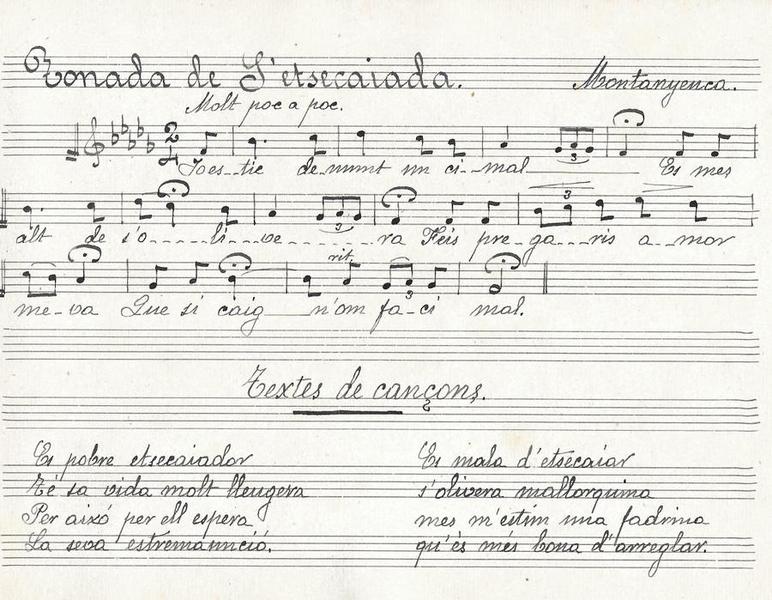 Tonada de S'etsecaiada.
Montanyenca.
Molt poc a poc.
2
4
Jo es--tic de-munt un ci-mal Es mes
3
alt de s'o-----li--ve-------ra Feis pre-ga---ris a--mor
3
3
rit.
me-va Que si caig n'om fa-ci mal.
3
Textes de cançons.
Es pobre etsecaiador
Té sa vida molt lleugera
Per aixó per ell espera
La seva estremanució.
Es mala d'etsecaiar
s'olivera mallorquina
mes m'estim una fadrina
qu'és més bona d'arreglar.